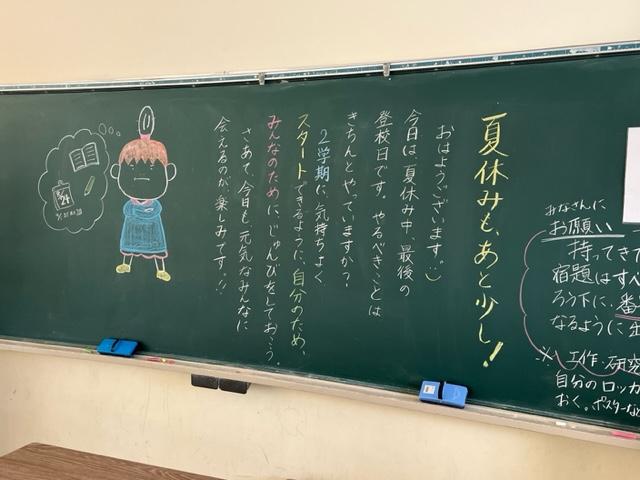 夏休みも、あと少し!
おはようございます。
今日は、夏休み中、最後の
登校日です。やるべきことは
きちんとやっていますか?
2学期に、気持ちよく
スタートできるように、自分のため、
みんなのために、じゅんびをしておこう。
さあて、今日も元気なみんなに
会えるのが、楽しみです。!!
8/24
みなさんに
お願い
持ってきて
宿題はすべ
ろう下に、番
なるように出
※ 工作・研究
自分のロッカ
おく。ポスターなど